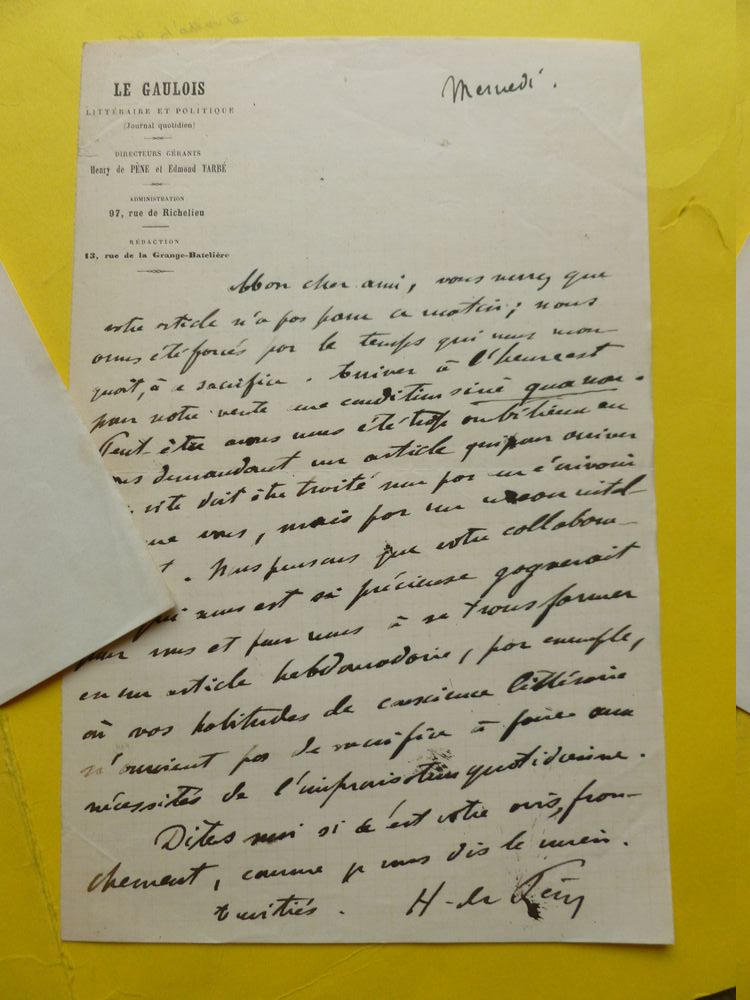 LE GAULOIS
LITTÉRAIRE ET POLITIQUE
(Journal quotidien)
DIRECTEURS GÉRANTS
Henry de PÈNE et Edmond TARBÉ
ADMINISTRATION
97, rue de Richelieu
RÉDACTION
13, rue de la Grange-Batelière
Mercredi.
Mon cher ami, vous verrez que
votre article n'a pas paru ce matin ; nous
avons été forcés par le temps qui nous man-
quait, à ce sacrifice. Arriver à l'heure est
pour notre vente une condition sine qua non.
Peut-être avons nous été trop ambitieux en
vous demandant un article qui pour arriver
vite doit être traité non par un écrivain
que vous, mais par un
. Nous pensons que votre collabora-
qui nous est si précieuse gagnerait
pour vous et pour nous à se transformer
en un article hebdomadaire, par exemple,
où vos habitudes de conscience littéraire
n'auraient pas de sacrifice à faire aux
nécessités de l'improvisation quotidienne.
Dites moi si c'est votre avis, fran-
chement, comme je vous dis le mien.
Amitiés. H. de Pène